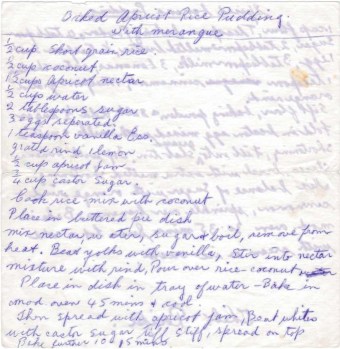 Baked Apricot Rice Pudding.
with merangue
1/2 cup short grain rice
1/2 cup coconut
1 1/2 cups apricot nectar
1/2 cups water
2 tablespoons sugar
3 eggs seperated
1 teaspoon vanilla Ess.
grated rind 1 lemon
1/2 cup apricot jam
3/4 cup castor sugar.
Cook rice mix with coconut
Place in buttered pie dish
mix nectar, water, sugar & boil, remove from
heat. Beat yolks with vanilla, Stir into nectar
mixture with rind, Pour over rice-coconut
Place in dish in tray of water - Bake in
mod oven 45 mins & cool.
Then spread with apricot jam, Beat whites
with castor sugar till stiff, spread on top
Bake further 10 15 mins